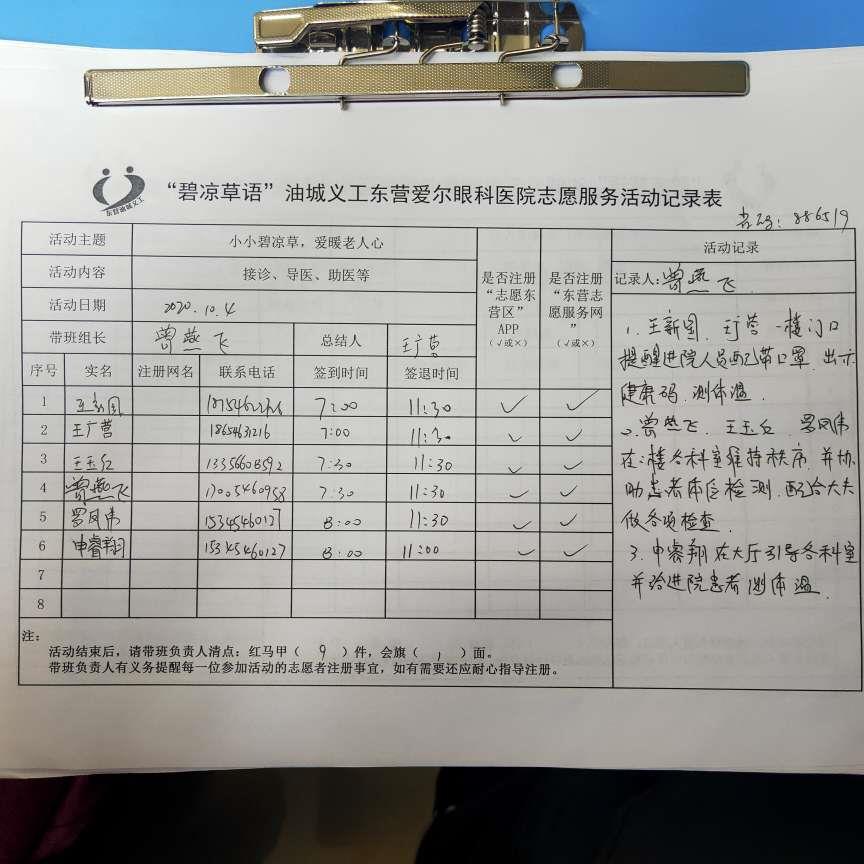 东营油城义工
“碧凉草语”油城义工东营爱尔眼科医院志愿服务活动记录表
: 886519
活动主题 小小碧凉草，爱暖老人心
活动内容 接诊、导医、助医等
活动日期 2020.10.4
带班组长 曾燕飞 总结人 王广营
是否注册“志愿东营区”APP（√或×）
是否注册“东营志愿服务网”（√或×）
序号 实名 注册网名 联系电话 签到时间 签退时间
1 王新国 7:00 11:30 ✓ ✓
2 王广营 18654631216 7:00 11:30 ✓ ✓
3 王玉红 13356608592 7:30 11:30 ✓ ✓
4 曾燕飞 17005460958 7:30 11:30 ✓ ✓
5 罗凤伟 15345460127 8:00 11:30 ✓ ✓
6 申睿翔 15345460127 8:00 11:00 ✓ ✓
7
8
注：
活动结束后，请带班负责人清点：红马甲（ 9 ）件，会旗（ 1 ）面。
带班负责人有义务提醒每一位参加活动的志愿者注册事宜，如有需要还应耐心指导注册。
活动记录
记录人:曾燕飞
1. 王新国、王广营 一楼门口
提醒进院人员配带口罩、出示
健康码、测体温.
2. 曾燕飞、王玉红、罗凤伟
在二楼各科室维持秩序.并协
助患者体位检测.配合大夫
做各项检查.
3. 申睿翔在大厅引导各科室
并给进院患者测体温.